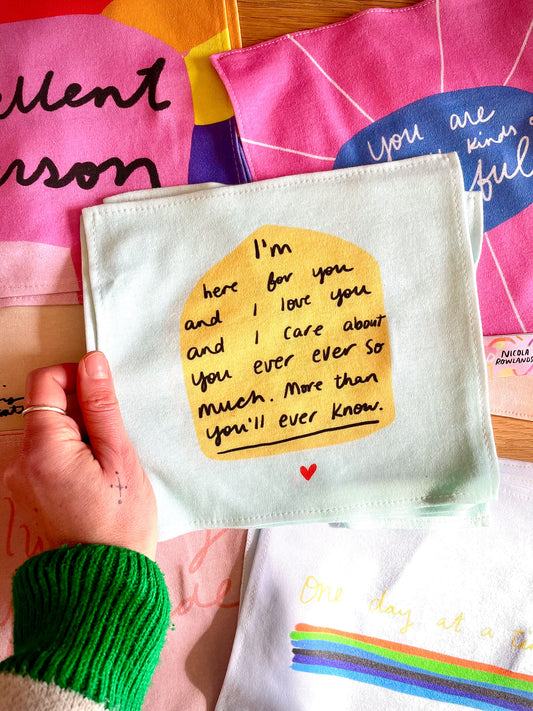 ellent
rson
You are
kinds
ful
I'm
here for you
and I love you
and I care about
you ever ever so
much. More than
you'll ever know.
NICOLA
ROWLANDS
One day at a